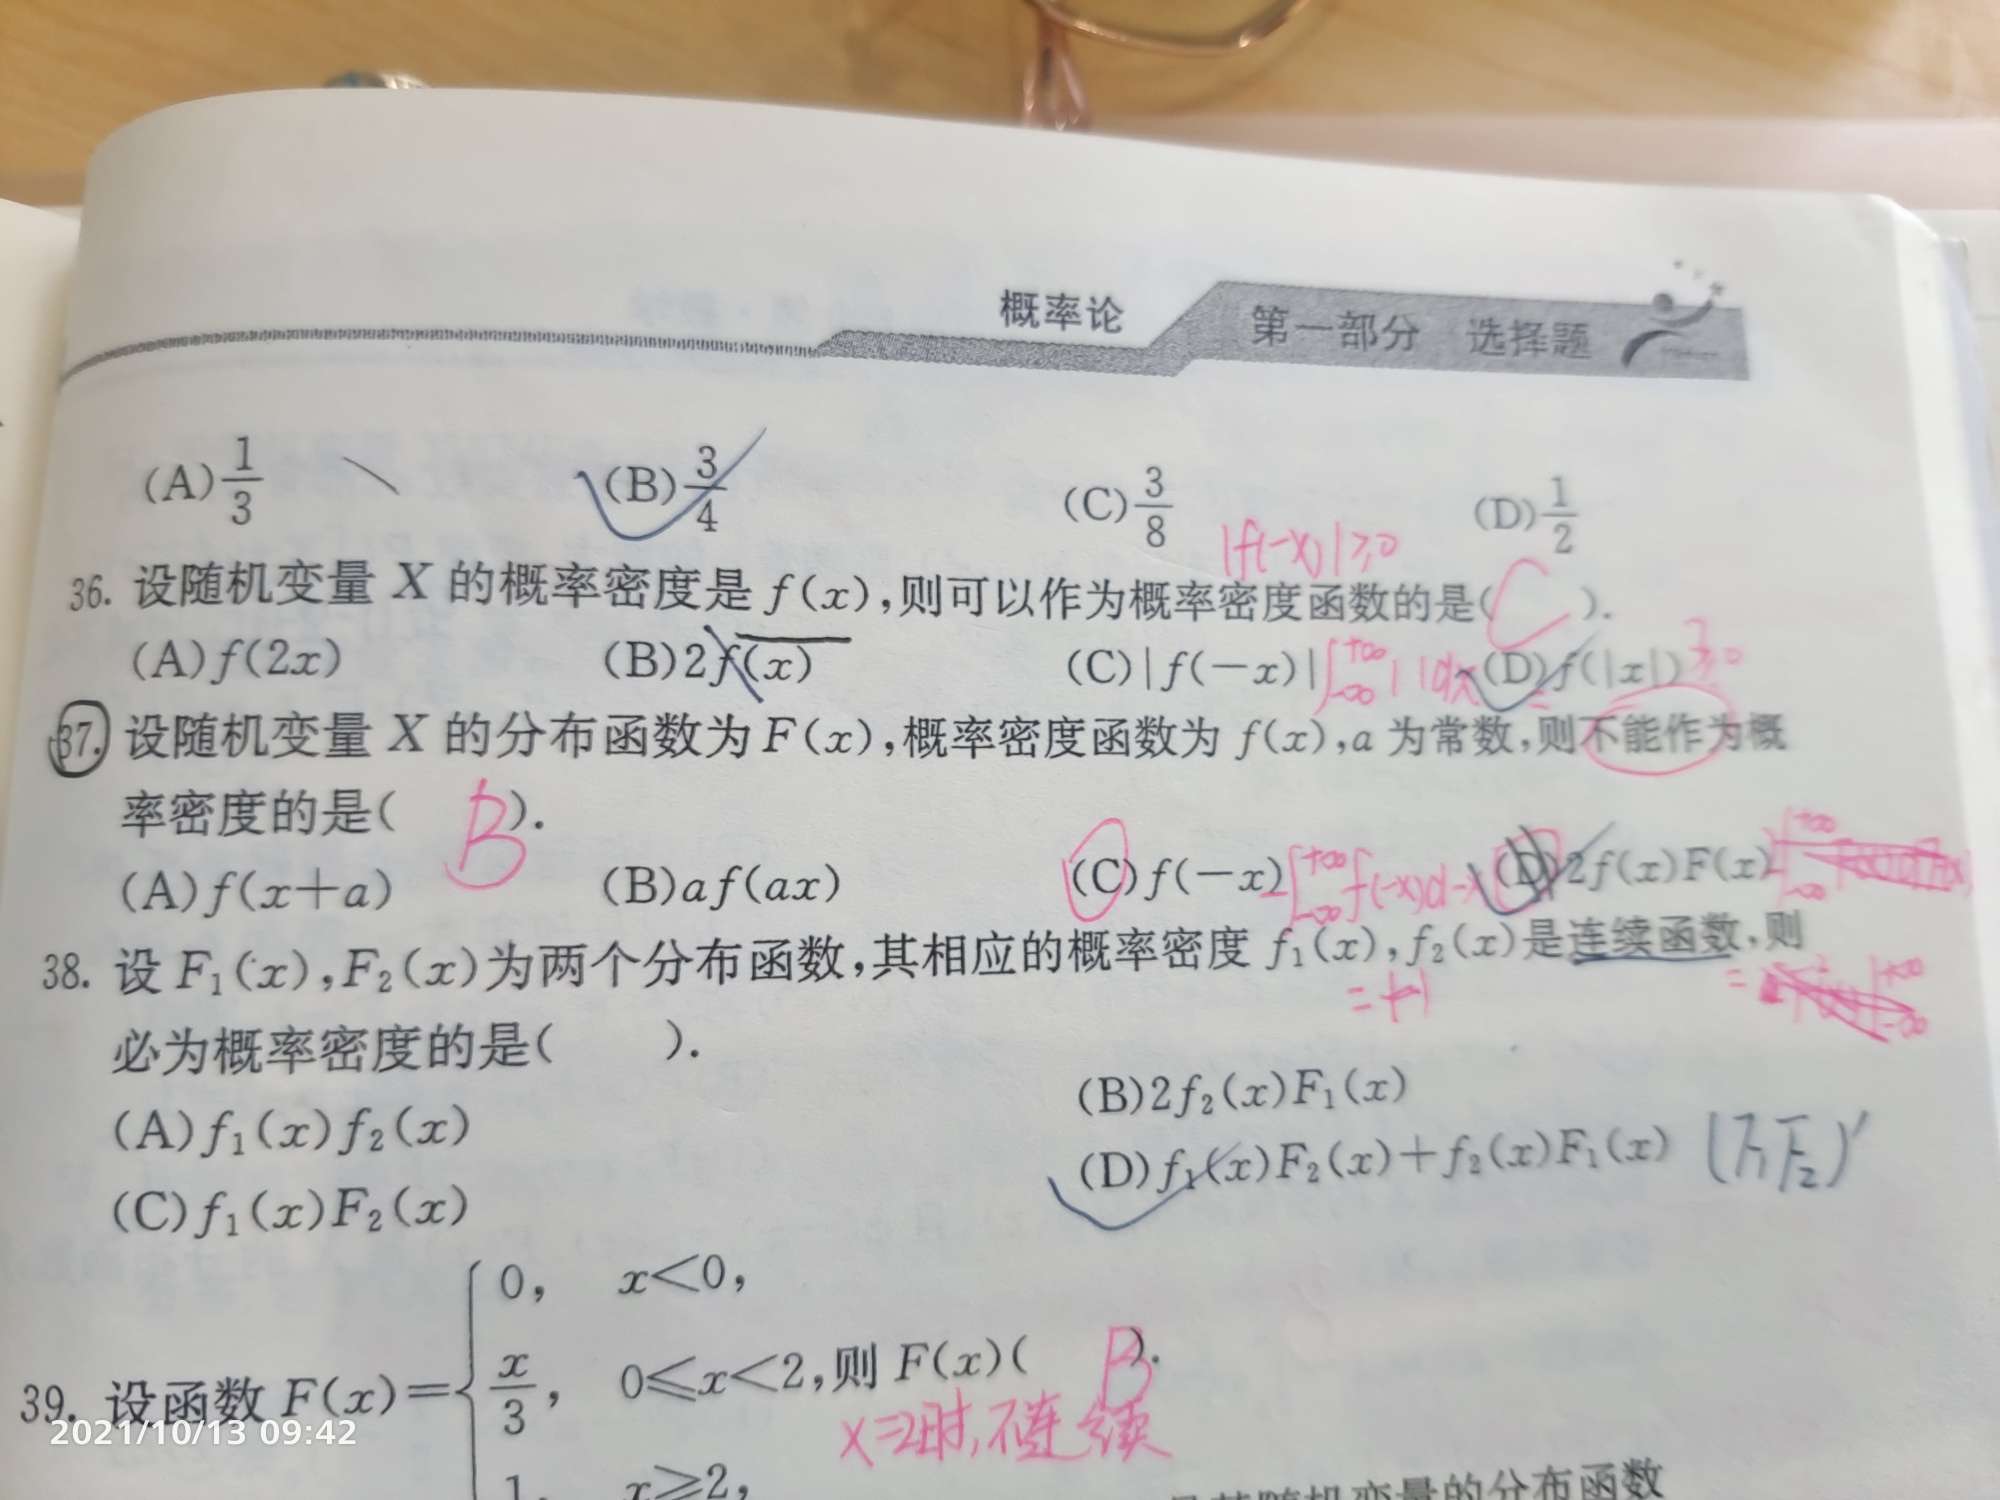 概率论 第一部分 选择题
(A) 1/3 (B) 3/4 (C) 3/8 (D) 1/2
|f(-x)|≥0
36. 设随机变量 X 的概率密度是 f(x),则可以作为概率密度函数的是( C ).
(A) f(2x) (B) 2f(x) (C) |f(-x)| ∫_{-∞}^{+∞} | |dx (D) f(|x|) ≥0
37. 设随机变量 X 的分布函数为 F(x),概率密度函数为 f(x),a 为常数,则不能作为概
率密度的是( B ).
(A) f(x+a) (B) af(ax) (C) f(-x) -∫_{-∞}^{+∞} f(-x)d-x (D) 2f(x)F(x)
38. 设 F₁(x),F₂(x)为两个分布函数,其相应的概率密度 f₁(x),f₂(x)是连续函数,则
必为概率密度的是( ).
(A) f₁(x)f₂(x) (B) 2f₂(x)F₁(x)
(C) f₁(x)F₂(x) (D) f₁(x)F₂(x)+f₂(x)F₁(x) (F₁F₂)′
39. 设函数 F(x)= { 0, x<0,
x/3, 0≤x<2,则 F(x)( B ).
1, x≥2,
x=2时,不连续
随机变量的分布函数
2021/10/13 09:42